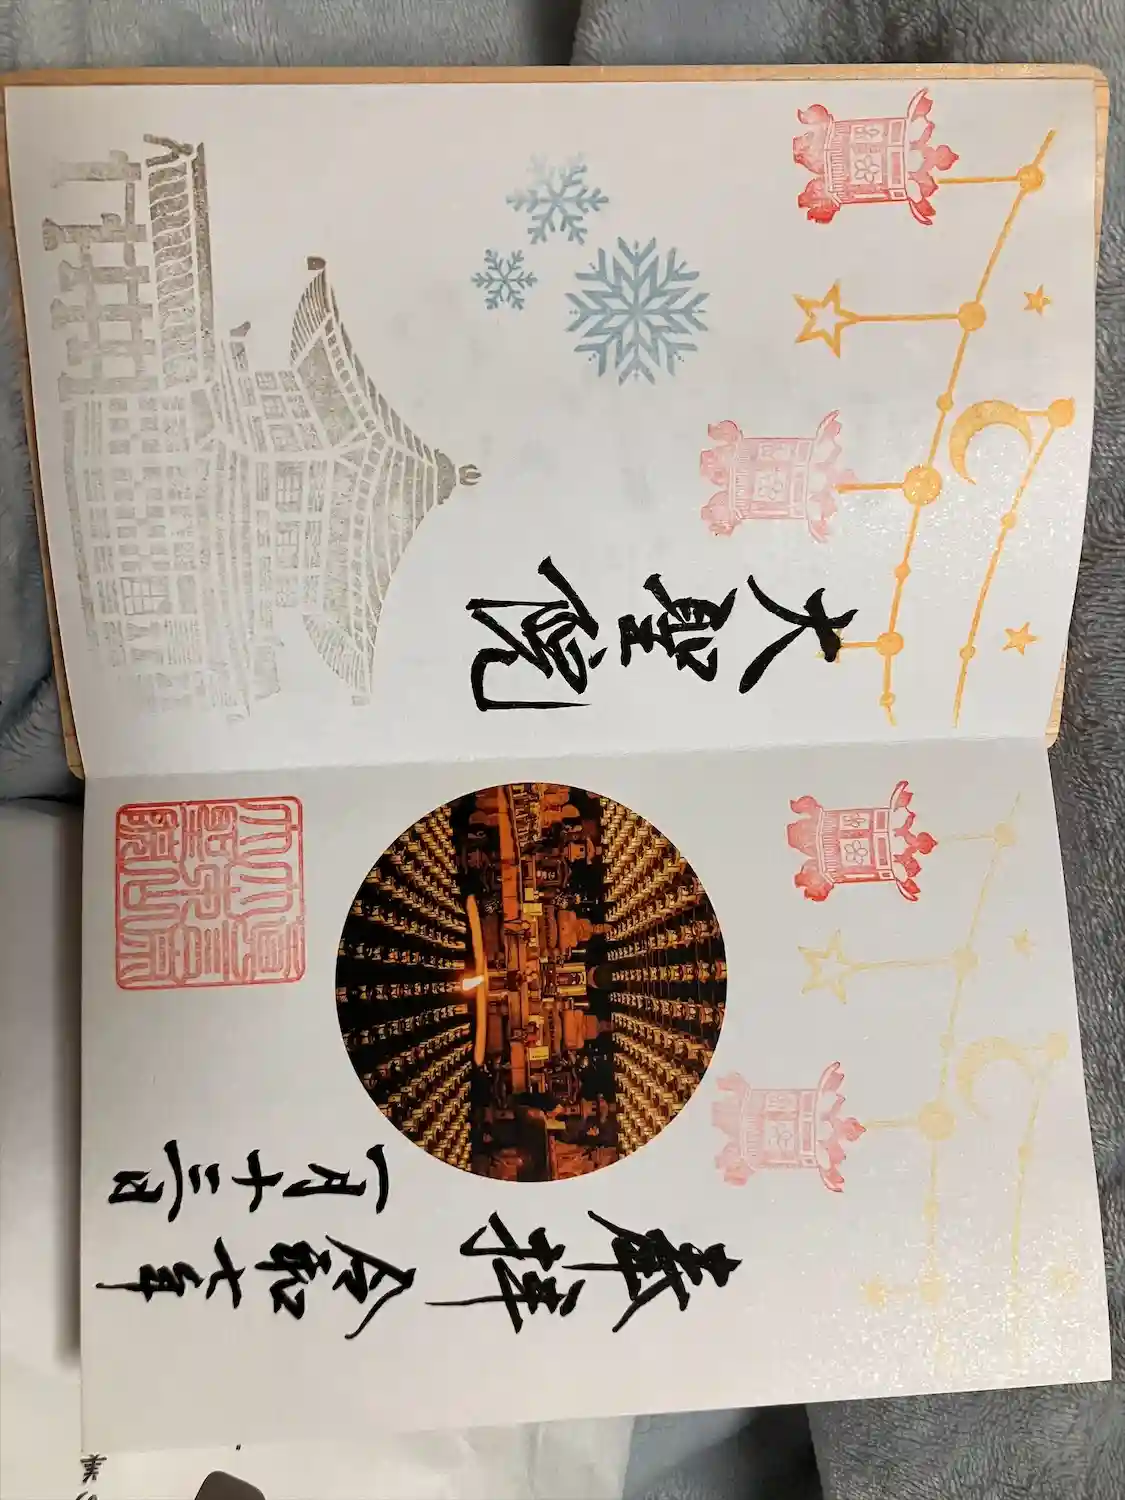 拝
令和七年
一月十三日
大聖院